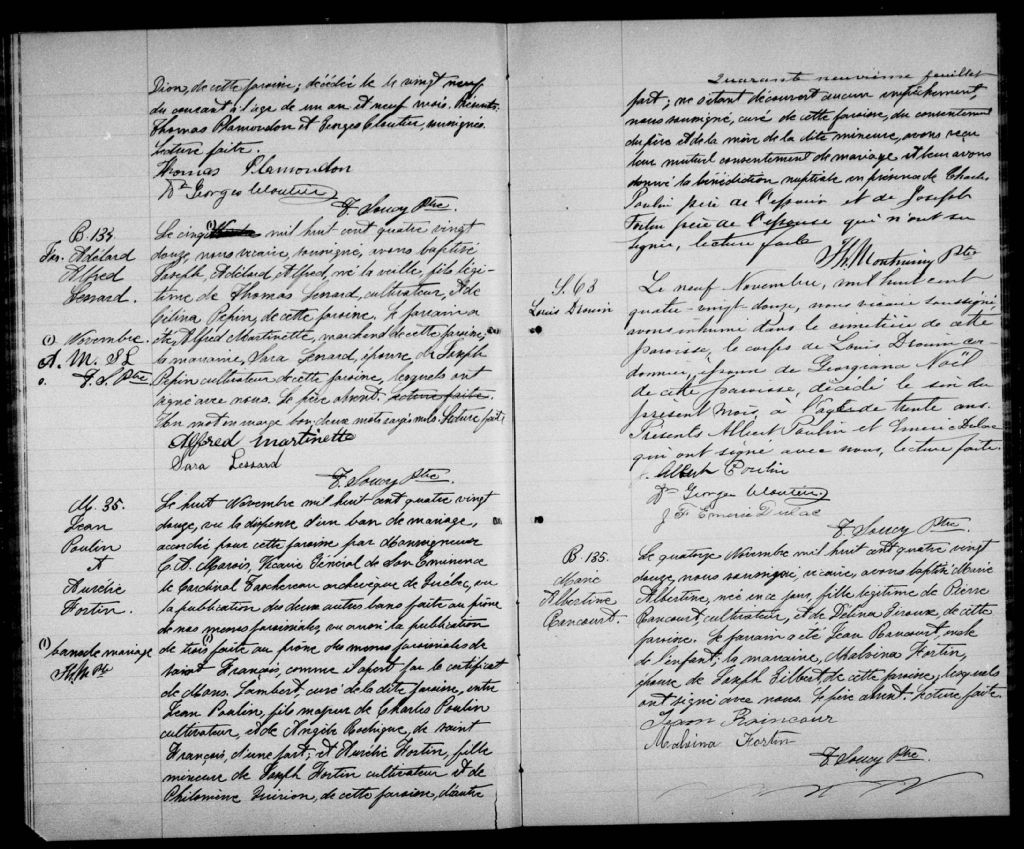 Dion, de cette paroisse; décédée le le vingt neuf
du courant à l'age de un an et neuf mois. Présents
Thomas Plamondon et Georges Cloutier, soussignés.
Lecture faite.
Thomas Plamondon
Dr Georges Cloutier
F. Soucy Ptre.
B. 134
Jos. Adélard
Alfred
Lessard.
Le cinq (1) mil huit cent quatre vingt
douze, nous vicaire, soussigné, avons baptisé
Joseph, Adélard, Alfred, né la veille, fils légi-
time de Thomas Lessard, cultivateur, et de
Célina Pepin, de cette paroisse. Le parrain a
(1) Novembre.
A. M. S L
F. S. Ptre
été, Alfred Martinette, marchand de cette paroisse,
la marraine, Sara Lessard, épouse de Joseph
Pepin cultivateur de cette paroisse, lesquels ont
signé avec nous. Le père absent. Lecture faite.
Un mot en marge bon, deux mots rayés nuls. Lecture faite
Alfred Martinette
Sara Lessard
F. Soucy Ptre
M. 35.
Jean
Poulin
&
Aurélie
Fortin.
Le huit Novembre mil huit cent quatre vingt
douze, vu la dispense d'un ban de mariage,
accordée pour cette paroisse par Monseigneur
C. A. Marois, Vicaire Général de Son Eminence
le Cardinal Taschereau archevêque de Québec, vu
la publication des deux autres bans faite au prône
de nos messes paroissiales, vu aussi la publication
(1) bans de mariage
Th. M. Ptr
de trois (1) faite au prône des messes paroissiales de
saint François, comme il apert par le certificat
de Mons. Lambert, curé de la dite paroisse, entre
Jean Poulin, fils majeur de Charles Poulin
cultivateur, et de Angèle Rodrigue, de saint
François, d'une part; et Aurélie Fortin, fille
mineure de Joseph Fortin cultivateur et de
Philomène Quirion, de cette paroisse, d'autre
Quarante neuvième feuillet
part; ne s'étant découvert aucun empêchement,
nous soussigné, curé de cette paroisse, du consentement
du père et de la mère de la dite mineure, avons reçu
leur mutuel consentement de mariage et leur avons
donné la bénédiction nuptiale en présence de Charles
Poulin père de l'époux et de Joseph
Fortin père de l'épouse qui n'ont su
signer, lecture faite
Th. Montminy Ptr
S. 63
Louis Drouin
Le neuf Novembre, mil huit cent
quatre-vingt-douze, nous vicaire soussigné,
avons inhumé dans le cimetière de cette
paroisse, le corps de Louis Drouin cor-
donnier, époux de Georgiana Noël
de cette paroisse, décédé le six du
présent mois, à l'age de trente ans.
Présents Albert Poulin et Emeric Dulac
qui ont signé avec nous, lecture faite.
Albert Poulin
Dr Georges Cloutier
J F Emeric Dulac
F. Soucy Ptre.
B. 135.
Marie
Albertine
Rancourt.
Le quatorze Novembre mil huit cent quatre vingt
douze, nous soussigné vicaire, avons baptisé Marie
Albertine, née en ce jour, fille légitime de Pierre
Rancourt, cultivateur, et de Délina Giroux, de cette
paroisse. Le parrain a été Jean Rancourt, oncle
de l'enfant; la marraine, Malvina Fortin,
épouse de Joseph Gilbert, de cette paroisse, lesquels
ont signé avec nous. Le père absent. Lecture faite.
Jean Roincour
Malvina Fortin
F. Soucy Ptre.